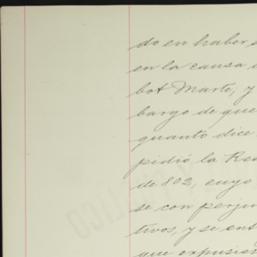 do en haber
en la causa
bot Marte, y
bargo de que
quanto dice
pidió la Rea
de 802, cuyo
se con perju
tivos, y se en
que expusie